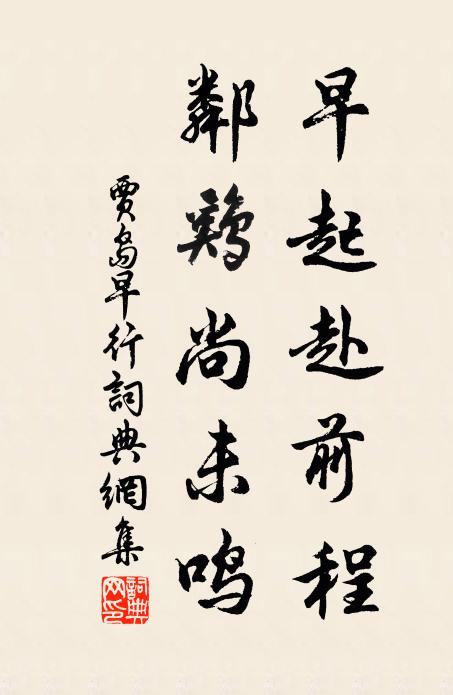 早起赴前程
鄰鷄尚未鳴
賈島早行詞典網集
詞典網印